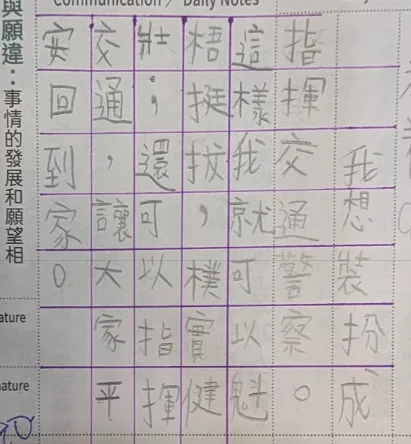 Communication / Daily Notes
我想裝扮成、
指揮交通警察。
這樣我就可以魁
梧挺拔，樸實健
壯；還可以指揮
交通，讓大家平
安回到家。
與願違：事情的發展和願望相
ature
nature